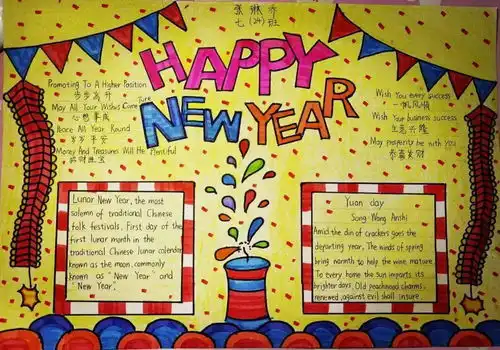 七(24)班
HAPPY
NEW YEAR
Promoting To A Higher Position
步步高升
May All Your Wishes Come Ture
心想事成
Peace All Year Round
岁岁平安
Money And Treasures Will Be Plentiful
招财进宝
Wish You every success
一帆风顺
Wish Your business success
生意兴隆
May prosperity be with you
恭喜发财
Lunar New Year, the most
solemn of traditional Chinese
folk festivals. First day of the
first lunar month in the
traditional Chinese lunar calendar
known as the moon, commonly
known as "New Year" and
"New Year".
Yuan day
Song Wang Anshi
Amid the din of crackers goes the
departing year, The winds of spring
bring warmth to help the wine mature
To every home the Sun imparts its
brighter days, Old peachwood charms,
renewed, against evil shall insure.